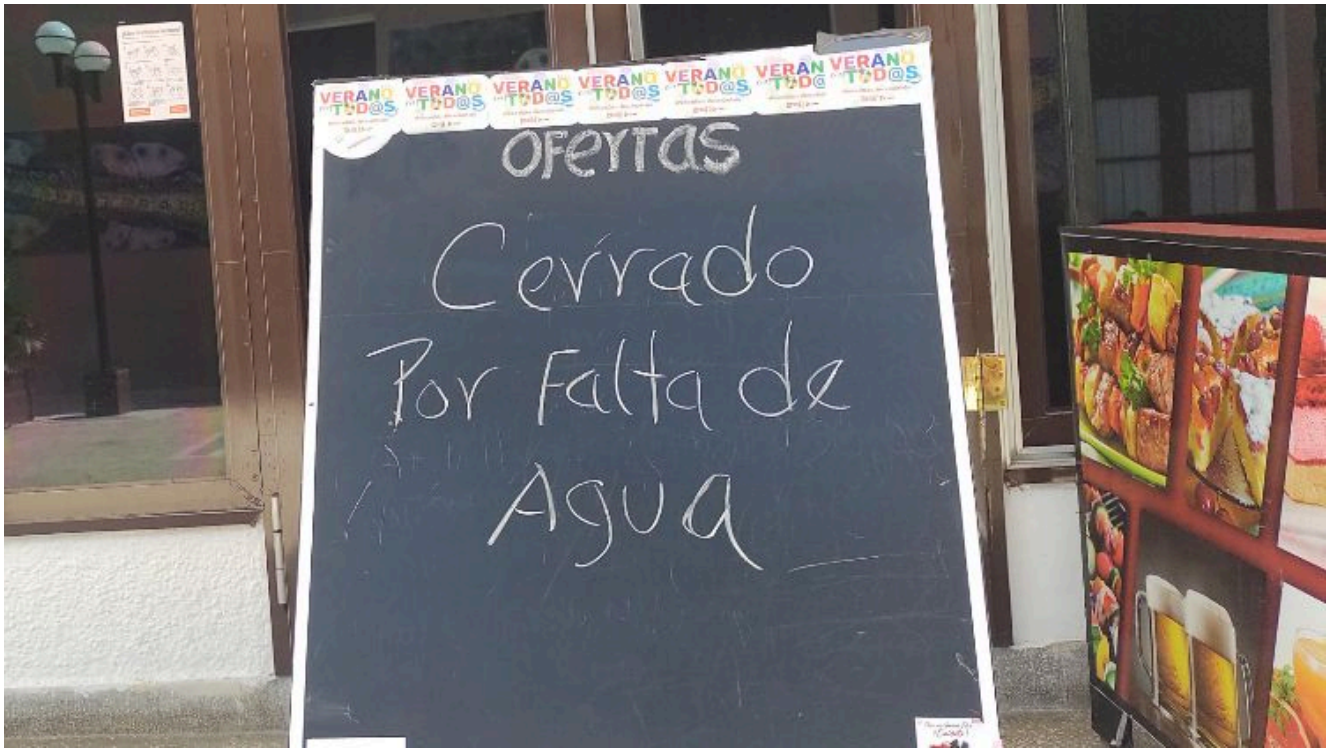 VERANO TOD@S VERANO TOD@S VERANO TOD@S VERANO TOD@S VERANO TOD@S VERAN TOD@ VERANO TOD@S
OFERTAS
Cerrado
Por Falta de
Agua